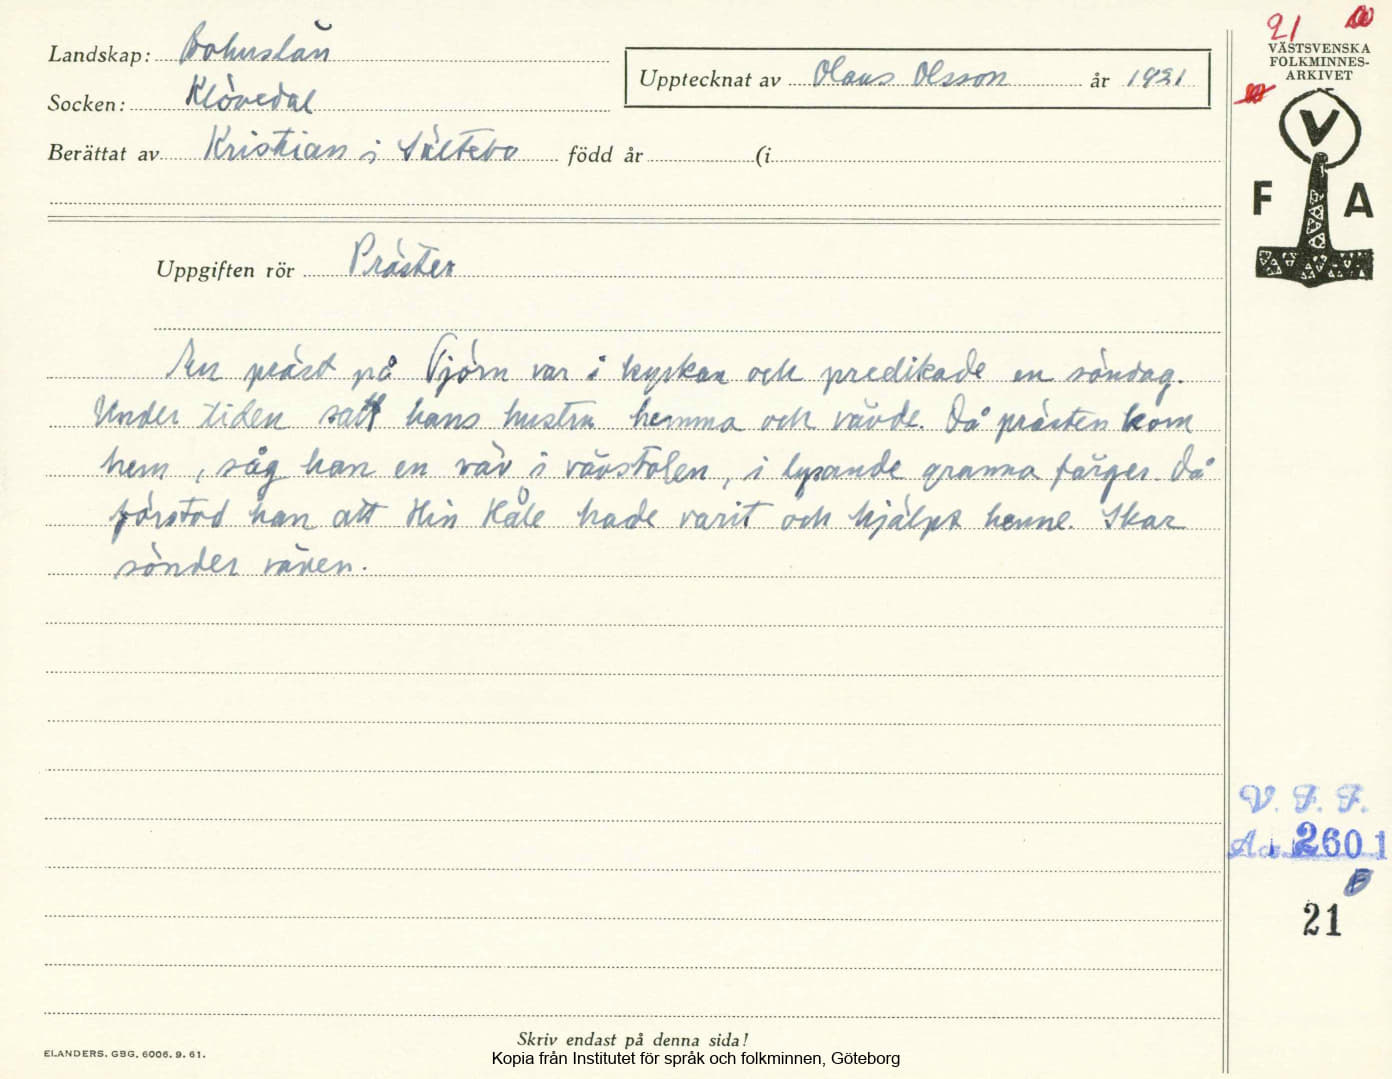 Landskap: Bohuslän
Socken: Klövedal
Berättat av Kristian i Sältebo född år (i
Upptecknat av Olaus Olsson år 1921
Uppgiften rör Präster
En präst på Tjörn var i kyrkan och predikade en söndag.
Under tiden satt hans hustru hemma och vävde. Då prästen kom
hem, såg han en väv i vävstolen, i lysande granna färger. Då
förstod han att Hin Håle hade varit och hjälpt henne. Skar
sönder väven.
21
VÄSTSVENSKA
FOLKMINNES-
ARKIVET
V
F A
V. F. F.
2601
21
Skriv endast på denna sida!
ELANDERS. GBG. 6006. 9. 61.
Kopia från Institutet för språk och folkminnen, Göteborg